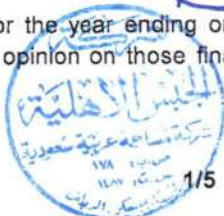 or the year ending o
opinion on those fina
شركة
الجبس الأهلية
شركة مساهمة عربية سعودية
ص.ب: ١٨٧
1/5